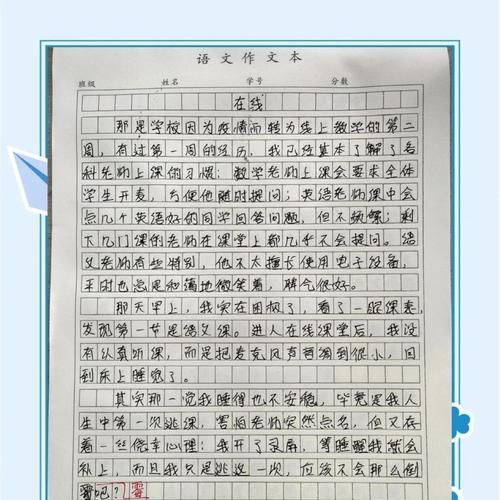 语文作文本
班级 姓名 学号 分数
在线
那是学校因为疫情而转为线上教学的第二
周，有过第一周的经历，我已经基本了解了各
科老师上课的习惯：数学老师上课会要求全体
学生开麦，方便他随时提问；英语老师课中会
点几个英语好的同学回答问题，但不频繁；剩
下几门课的老师在课堂上都几乎不会提问。语
文老师有些特别，他不太擅长使用电子设备，
平时也总是和蔼地微笑着，脾气很好。
那天早上，我实在困极了，看了一眼课表，
发现第一节是语文课。进入在线课堂后，我没
有认真听课，而是把麦克风声音调到很小，回
到床上睡觉了。
其实那一觉我睡得也不安稳，毕竟是我人
生中第一次逃课，害怕老师突然点名，但又存
着一丝侥幸心理：我开了录屏，等睡醒我就会
补上，而且我只是逃这一次，应该不会那么倒
霉吧？霉